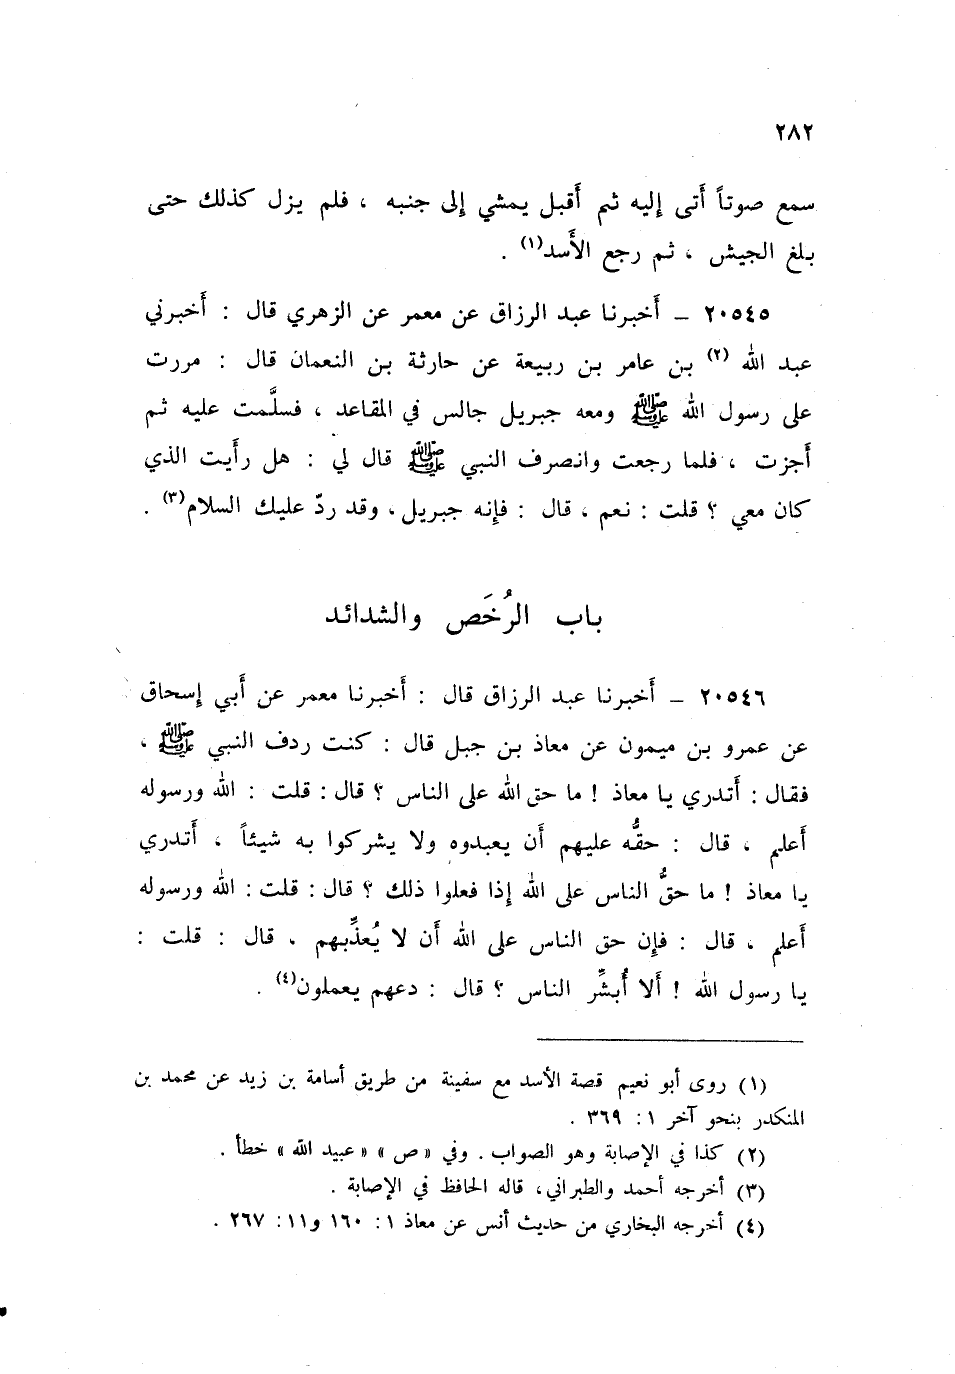 ٢٨٢
سمع صوتاً أَتى إليه ثم أَقبل يمشي إلى جنبه ، فلم يزل كذلك حتى
بلغ الجيش ، ثم رجع الأَسد(١) .
٢٠٥٤٥ – أَخبرنا عبد الرزاق عن معمر عن الزهري قال : أَخبرني
عبد الله (٢) بن عامر بن ربيعة عن حارثة بن النعمان قال : مررت
على رسول الله ﷺ ومعه جبريل جالس في المقاعد ، فسلَّمت عليه ثم
أَجزت ، فلما رجعت وانصرف النبي ﷺ قال لي : هل رأَيت الذي
كان معي ؟ قلت : نعم ، قال : فإنه جبريل ، وقد ردّ عليك السلام(٣) .
باب الرُخَص والشدائد
٢٠٥٤٦ – أَخبرنا عبد الرزاق قال : أَخبرنا معمر عن أَبي إسحاق
عن عمرو بن ميمون عن معاذ بن جبل قال : كنت ردف النبي ﷺ ،
فقال : أَتدري يا معاذ ! ما حق الله على الناس ؟ قال : قلت : الله ورسوله
أَعلم ، قال : حقُّه عليهم أَن يعبدوه ولا يشركوا به شيئاً ، أَتدري
يا معاذ ! ما حقُّ الناس على الله إذا فعلوا ذلك ؟ قال : قلت : الله ورسوله
أَعلم ، قال : فإن حق الناس على الله أَن لا يُعذِّبهم ، قال : قلت :
يا رسول الله ! أَلا أُبشِّر الناس ؟ قال : دعهم يعملون(٤) .
(١) روى أبو نعيم قصة الأسد مع سفينة من طريق أسامة بن زيد عن محمد بن
المنكدر بنحو آخر ١ : ٣٦٩ .
(٢) كذا في الإصابة وهو الصواب . وفي « ص » « عبيد الله » خطأ .
(٣) أخرجه أحمد والطبراني ، قاله الحافظ في الإصابة .
(٤) أخرجه البخاري من حديث أنس عن معاذ ١ : ١٦٠ و١١ : ٢٦٧ .